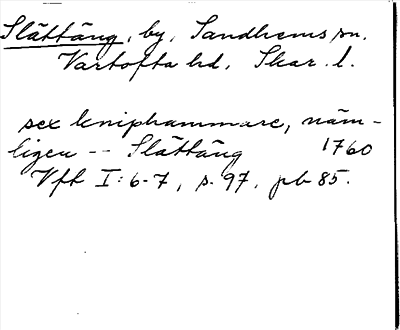 Slättäng, by, Sandhems sn.
Vartofta hd, Skar. l.
sex kniphammare, näm-
ligen -- Slättäng 1760
Vft I: 6-7, s. 97, pb 85.